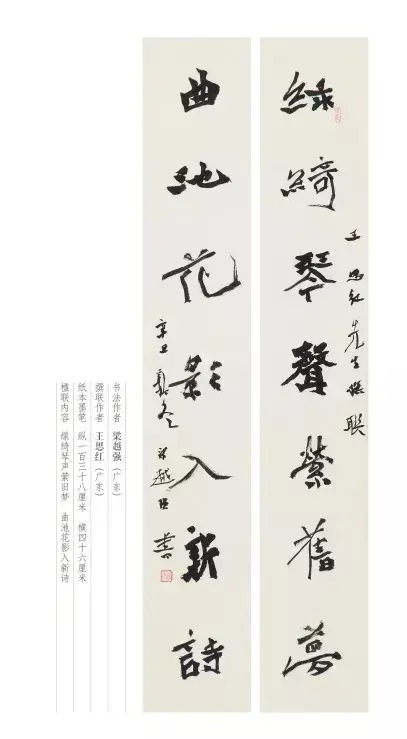 綠綺琴聲縈舊夢
王思红先生撰联
曲池花影入新詩
辛丑冬梁越强書
书法作者 梁越强（广东）
撰联作者 王思红（广东）
纸本墨笔 纵一百三十八厘米 横四十六厘米
楹联内容 绿绮琴声萦旧梦 曲池花影入新诗